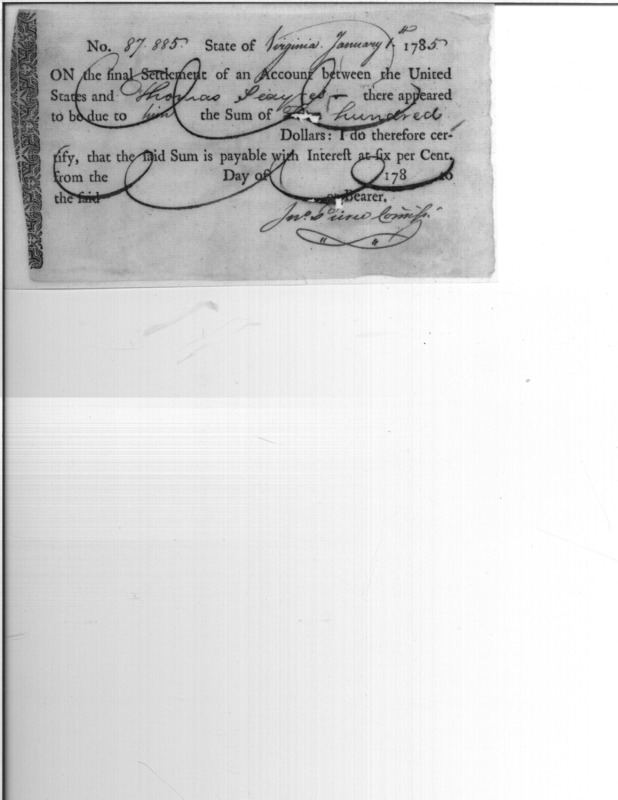 No. 87.885. State of Virginia. January 1th 1785
ON the final Settlement of an Account between the United
States and Thomas there appeared
to be due to him the Sum of hundred
Dollars: I do therefore cer-
tify, that the said Sum is payable with Interest at six per Cent.
from the Day of 178 to
the said or Bearer.
Jno.